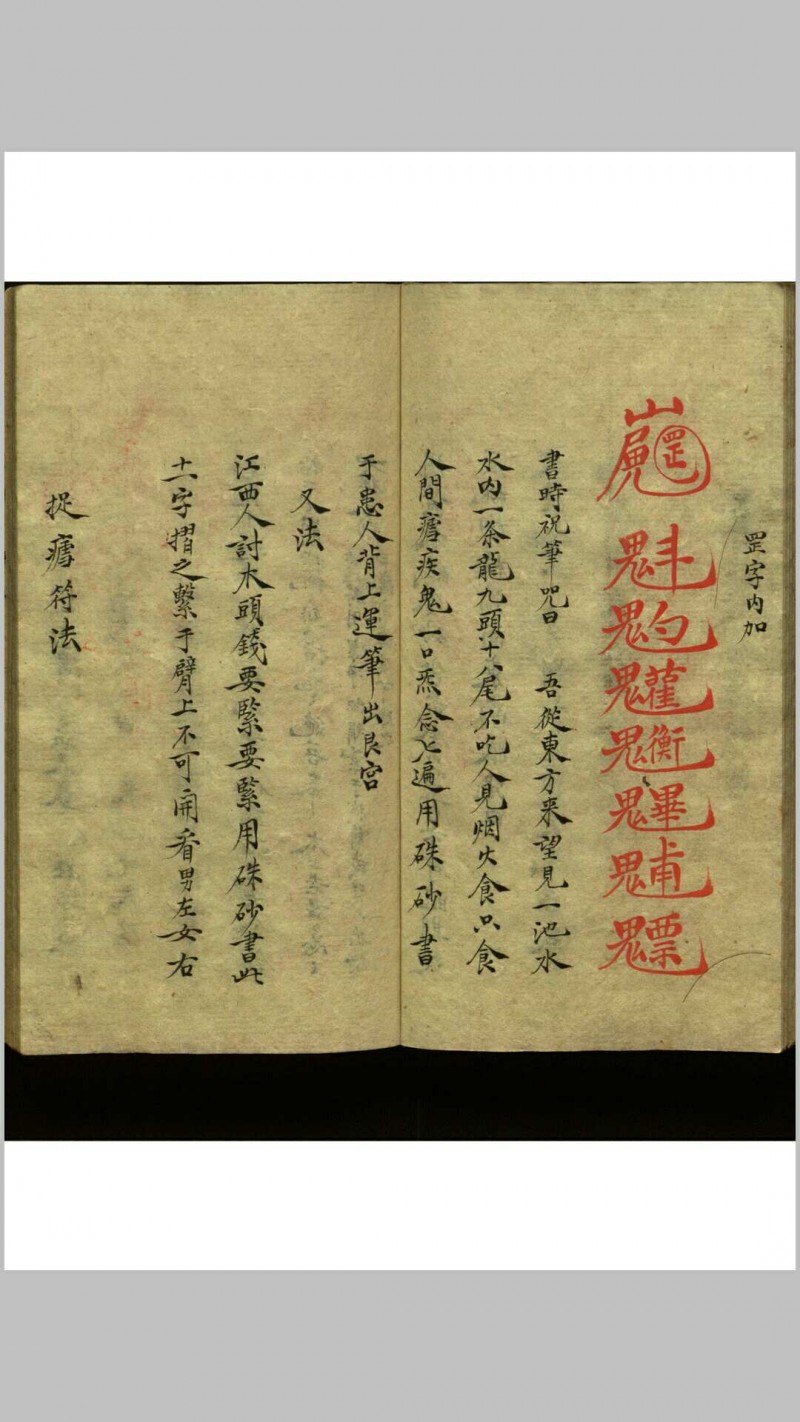 罡字内加
罡
魁䰢魓
書時祝筆咒曰 吾從東方来望見一池水
水内一条龍九頭十八尾不吃人見烟火食只食
人間瘧疾鬼一口炁念七遍用硃砂書
于患人背上運筆出艮宮
又法
江西人討木頭錢要緊要緊用硃砂書此
十一字摺之繫于臂上不可開看男左女右
捉瘧符法